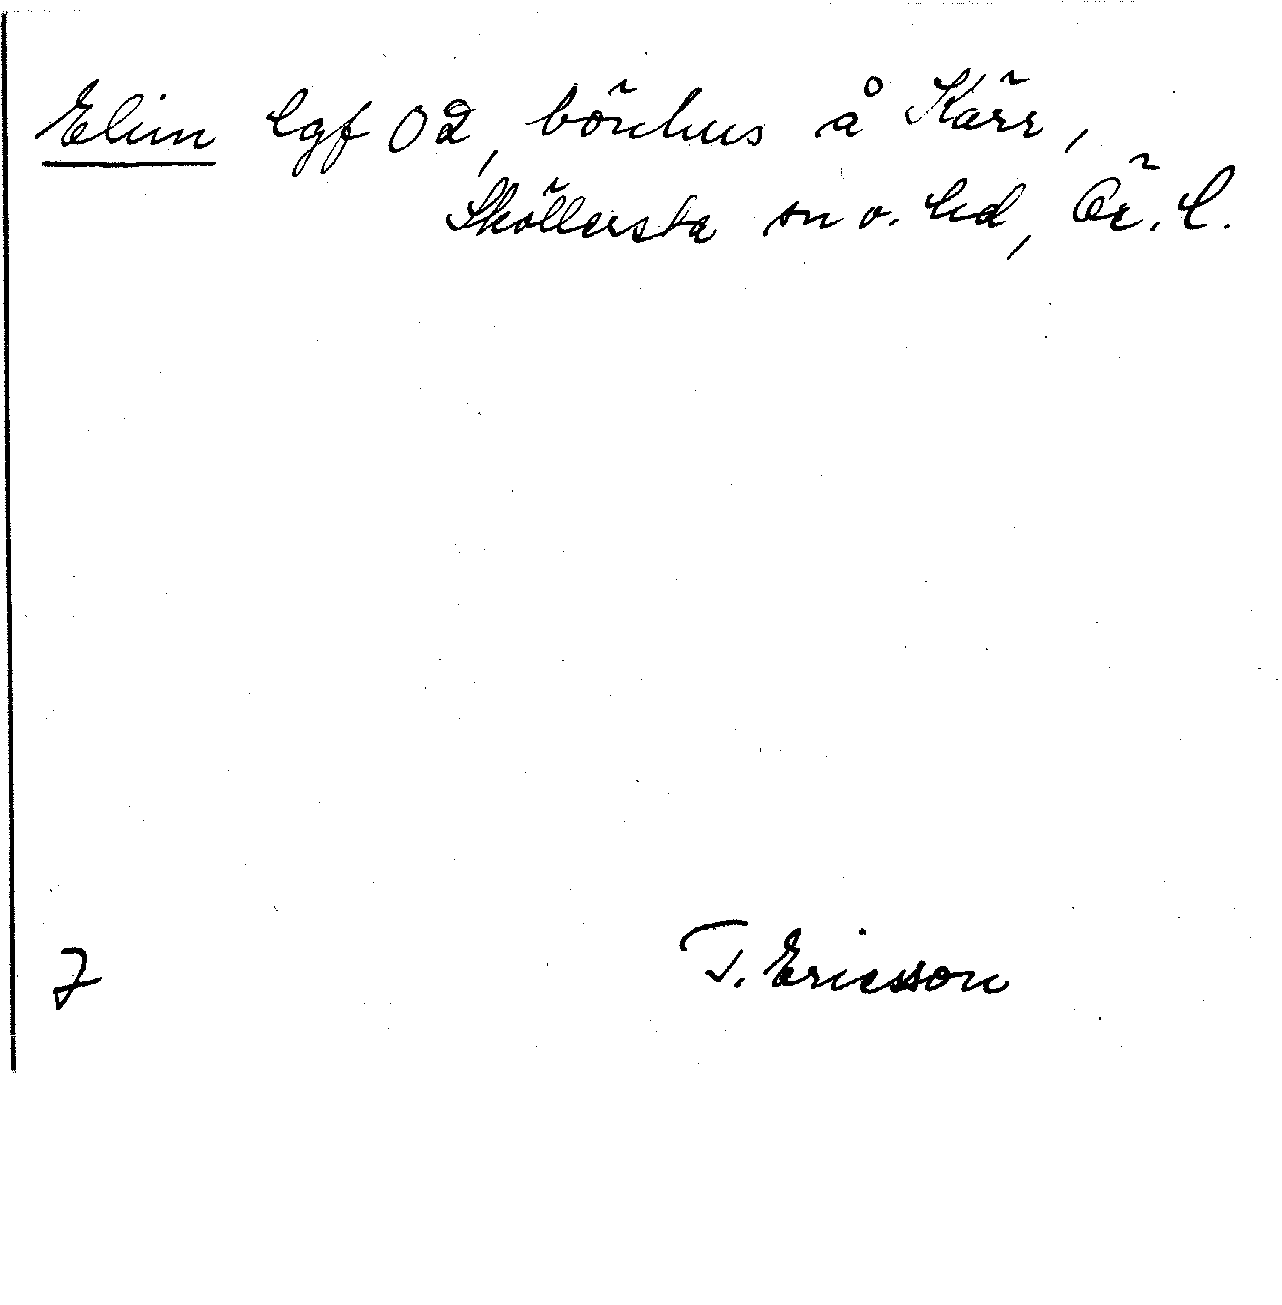 Elim lgf 02, bönhus å Kärr,
Sköllersta sn o. hd, Ör. l.
7
T. Ericsson